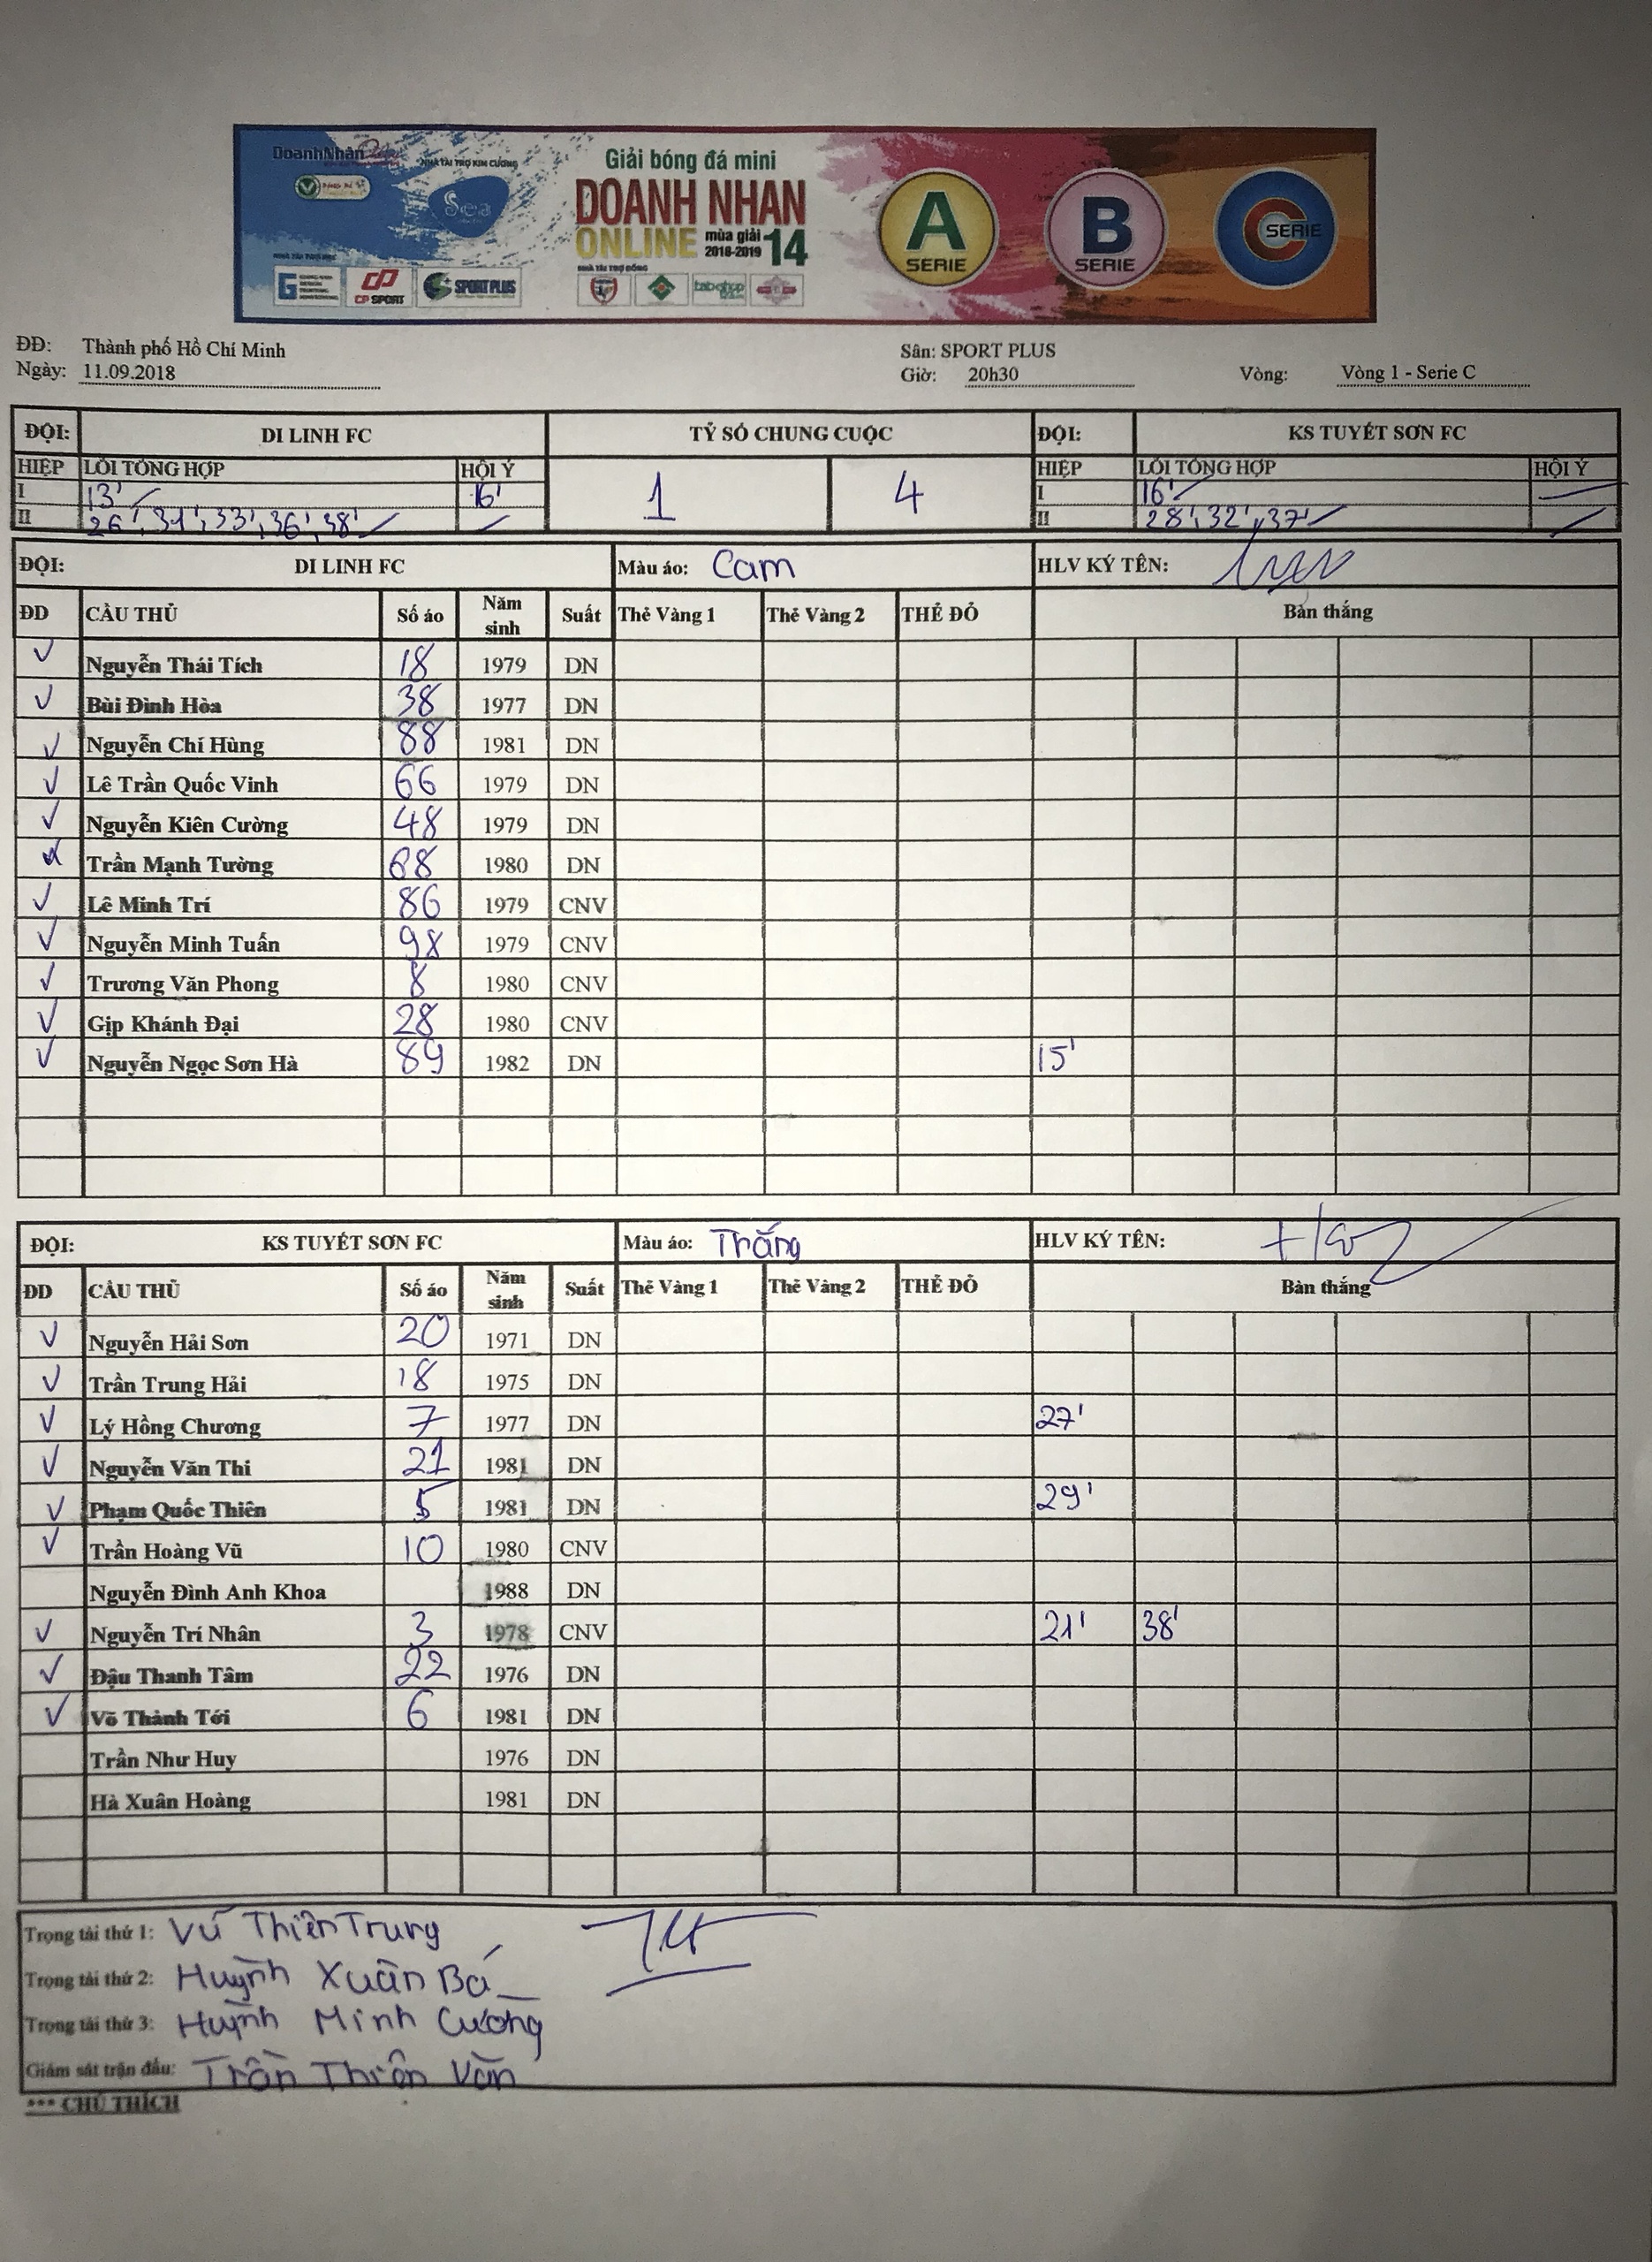 DoanhNhân
NHÀ TÀI TRỢ KIM CƯƠNG
Sea
Giải bóng đá mini
DOANH NHAN
ONLINE mùa giải 2018-2019 14
NHÀ TÀI TRỢ ĐỒNG
G CP SPORT SPORT PLUS
A SERIE
B SERIE
C SERIE
ĐĐ: Thành phố Hồ Chí Minh Sân: SPORT PLUS
Ngày: 11.09.2018 Giờ: 20h30 Vòng: Vòng 1 - Serie C
ĐỘI: DI LINH FC TỶ SỐ CHUNG CUỘC ĐỘI: KS TUYẾT SƠN FC
HIỆP LỖI TỔNG HỢP HỘI Ý 1 4 HIỆP LỖI TỔNG HỢP HỘI Ý
I 13' 16' I 16'
II 26', 31', 33', 36', 38' II 28', 32', 37'
ĐỘI: DI LINH FC Màu áo: Cam HLV KÝ TÊN:
ĐD CẦU THỦ Số áo Năm sinh Suất Thẻ Vàng 1 Thẻ Vàng 2 THẺ ĐỎ Bàn thắng
Nguyễn Thái Tích 18 1979 DN
Bùi Đình Hòa 38 1977 DN
Nguyễn Chí Hùng 88 1981 DN
Lê Trần Quốc Vinh 66 1979 DN
Nguyễn Kiên Cường 48 1979 DN
Trần Mạnh Tường 68 1980 DN
Lê Minh Trí 86 1979 CNV
Nguyễn Minh Tuấn 98 1979 CNV
Trương Văn Phong 8 1980 CNV
Gịp Khánh Đại 28 1980 CNV
Nguyễn Ngọc Sơn Hà 89 1982 DN 15'
ĐỘI: KS TUYẾT SƠN FC Màu áo: Trắng HLV KÝ TÊN:
ĐD CẦU THỦ Số áo Năm sinh Suất Thẻ Vàng 1 Thẻ Vàng 2 THẺ ĐỎ Bàn thắng
Nguyễn Hải Sơn 20 1971 DN
Trần Trung Hải 18 1975 DN
Lý Hồng Chương 7 1977 DN 27'
Nguyễn Văn Thi 21 1981 DN
Phạm Quốc Thiên 5 1981 DN 29'
Trần Hoàng Vũ 10 1980 CNV
Nguyễn Đình Anh Khoa 1988 DN
Nguyễn Trí Nhân 3 1978 CNV 21' 38'
Đậu Thanh Tâm 22 1976 DN
Võ Thành Tới 6 1981 DN
Trần Như Huy 1976 DN
Hà Xuân Hoàng 1981 DN
Trọng tài thứ 1: Vũ Thiên Trung
Trọng tài thứ 2: Huỳnh Xuân Bá
Trọng tài thứ 3: Huỳnh Minh Cường
Giám sát trận đấu: Trần Thiên Văn
*** CHÚ THÍCH